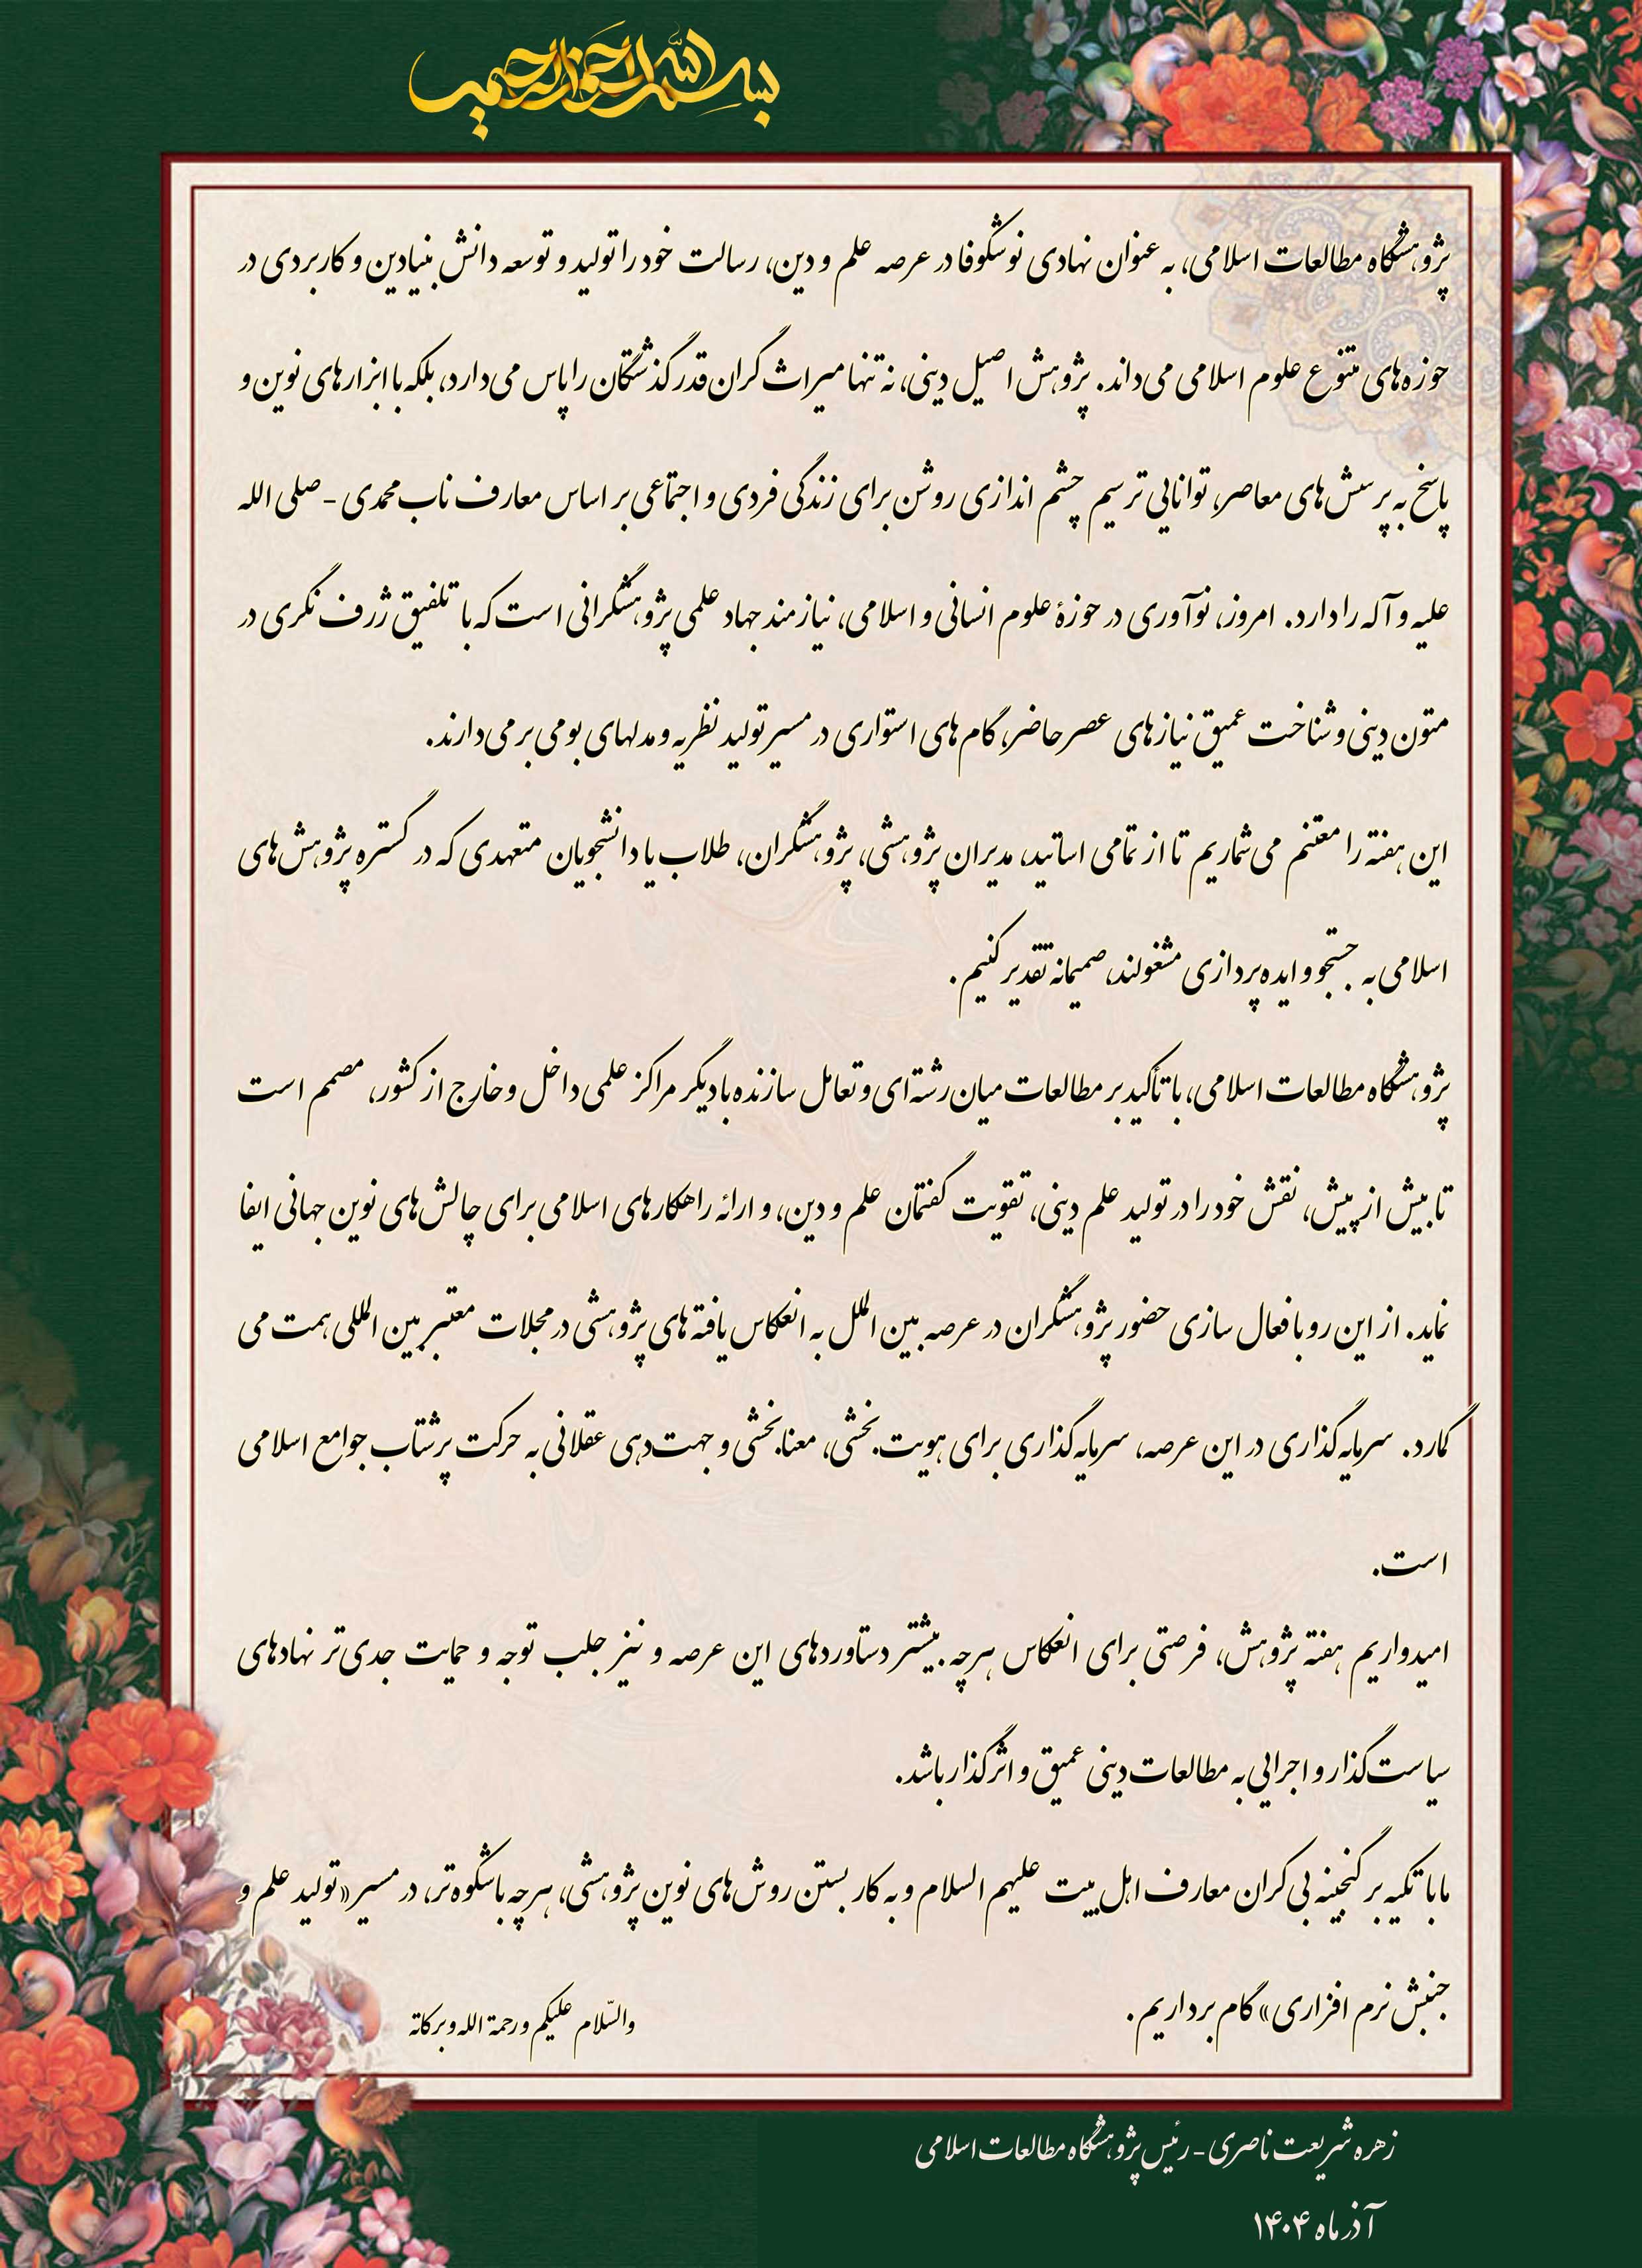 بسم الله الرحمن الرحیم
پژوهشگاه مطالعات اسلامی، به عنوان نهادی نوشکوفا در عرصه علم و دین، رسالت خود را تولید و توسعه دانش بنیادین و کاربردی در
حوزه‌های متنوع علوم اسلامی می‌داند. پژوهش اصیل دینی، نه تنها میراث گران‌قدر گذشتگان را پاس می‌دارد، بلکه با ابزارهای نوین و
پاسخ به پرسش‌های معاصر، توانایی ترسیم چشم اندازی روشن برای زندگی فردی و اجتماعی بر اساس معارف ناب محمدی - صلی الله
علیه و آله را دارد. امروز، نوآوری در حوزهٔ علوم انسانی و اسلامی، نیازمند جهاد علمی پژوهشگرانی است که با تلفیق ژرف نگری در
متون دینی و شناخت عمیق نیازهای عصر حاضر، گام‌های استواری در مسیر تولید نظریه و مدلهای بومی بر می‌دارند.
این هفته را مغتنم می‌شماریم تا از تمامی اساتید، مدیران پژوهشی، پژوهشگران، طلاب یا دانشجویان متعهدی که در گستره پژوهش‌های
اسلامی به جستجو و ایده‌پردازی مشغولند، صمیمانه تقدیر کنیم.
پژوهشگاه مطالعات اسلامی، با تأکید بر مطالعات میان‌رشته‌ای و تعامل سازنده با دیگر مراکز علمی داخل و خارج از کشور، مصمم است
تا بیش از پیش، نقش خود را در تولید علم دینی، تقویت گفتمان علم و دین، و ارائه راهکارهای اسلامی برای چالش‌های نوین جهانی ایفا
نماید. از این رو با فعال سازی حضور پژوهشگران در عرصه بین الملل به انعکاس یافته‌های پژوهشی در مجلات معتبر بین المللی همت می
گمارد. سرمایه‌گذاری در این عرصه، سرمایه‌گذاری برای هویت‌بخشی، معنابخشی و جهت‌دهی عقلانی به حرکت پرشتاب جوامع اسلامی
است.
امیدواریم هفته پژوهش، فرصتی برای انعکاس هرچه بیشتر دستاوردهای این عرصه و نیز جلب توجه و حمایت جدی‌تر نهادهای
سیاست‌گذار و اجرایی به مطالعات دینی عمیق و اثرگذار باشد.
ما با تکیه بر گنجینه بی‌کران معارف اهل بیت علیهم السلام و به کار بستن روش‌های نوین پژوهشی، هرچه باشکوه‌تر، در مسیر «تولید علم و
جنبش نرم افزاری» گام برداریم.
والسّلام علیکم و رحمة الله و برکاته
زهره شریعت ناصری - رئیس پژوهشگاه مطالعات اسلامی
آذر ماه ۱۴۰۴